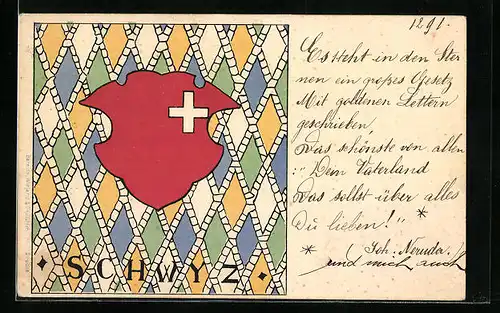 1291.
Es steht in den Ster
nen ein großes Gesetz
Mit goldenen Lettern
geschrieben,
Das schönste von allen
:" Dein Vaterland
Das sollst über alles
Du lieben!" *
* Joh. Neruda.
und mich auch
SCHWYZ